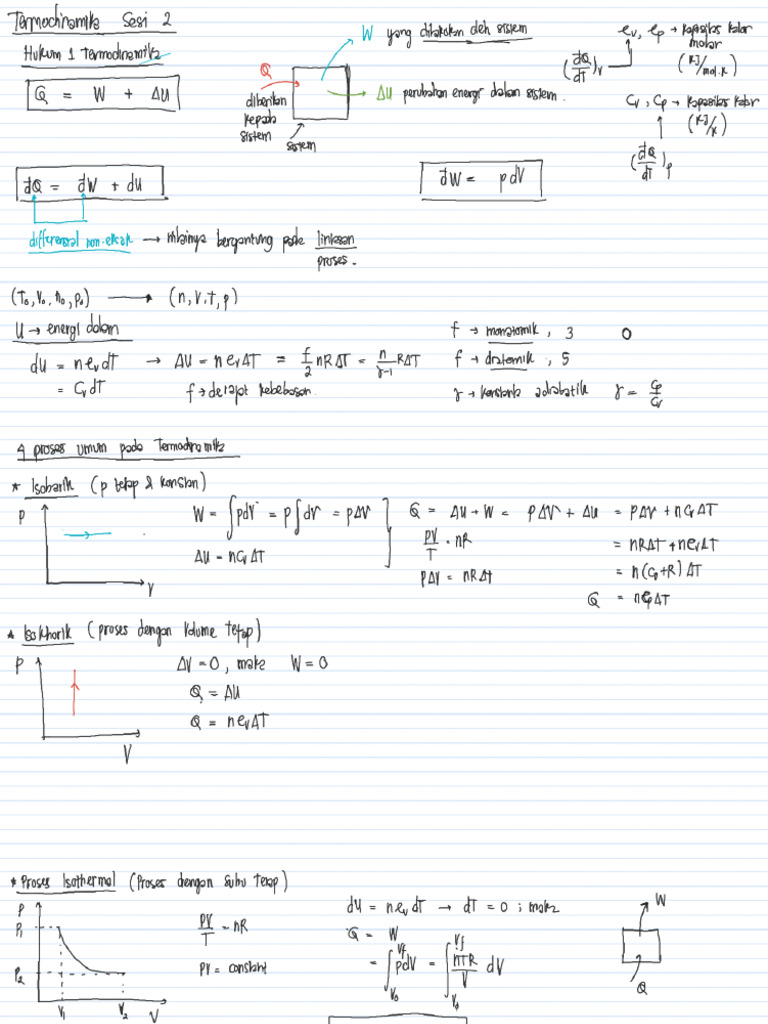 Termodinamika Sesi 2
Hukum 1 Termodinamika
Q = W + ΔU
W yang dilakukan oleh sistem
Q
diberikan kepada sistem
sistem
ΔU perubahan energi dalam sistem.
(đQ/dT)v
cv, cp → kapasitas kalor molar
(KJ/mol.K)
Cv, Cp → kapasitas kalor
(KJ/K)
(đQ/dT)p
đQ = đW + dU
đW = pdV
differensial non-eksak → nilainya bergantung pada lintasan
proses.
(T₀, V₀, n₀, p₀) → (n, V, T, p)
U → energi dalam
f → monatomik, 3
0
dU = ncvdT → ΔU = ncvΔT = f/2 nRΔT = n/γ-1 RΔT
f → diatomik, 5
= CvdT
f → derajat kebebasan
γ → konstanta adiabatik γ = Cp/Cv
4 proses umum pada Termodinamika
* Isobarik (p tetap & konstan)
P
V
W = ∫pdV = p∫dV = pΔV
ΔU = ncvΔT
Q = ΔU + W = PΔV + ΔU = PΔV + nCvΔT
PV/T = nR
= nRΔT + ncvΔT
PΔV = nRΔT
= n(Cp+R)ΔT
Q = ncpΔT
* Isokhorik (proses dengan volume tetap)
P
V
ΔV = 0, maka W = 0
Q = ΔU
Q = ncvΔT
* Proses Isothermal (Proses dengan suhu tetap)
P
P1
P2
V1
V2
V
PV/T = nR
PV = constant
dU = ncvdT → dT = 0 ; maka
Q = W
= ∫V₀Vf pdV = ∫V₀Vf nTR/V dV
W
Q